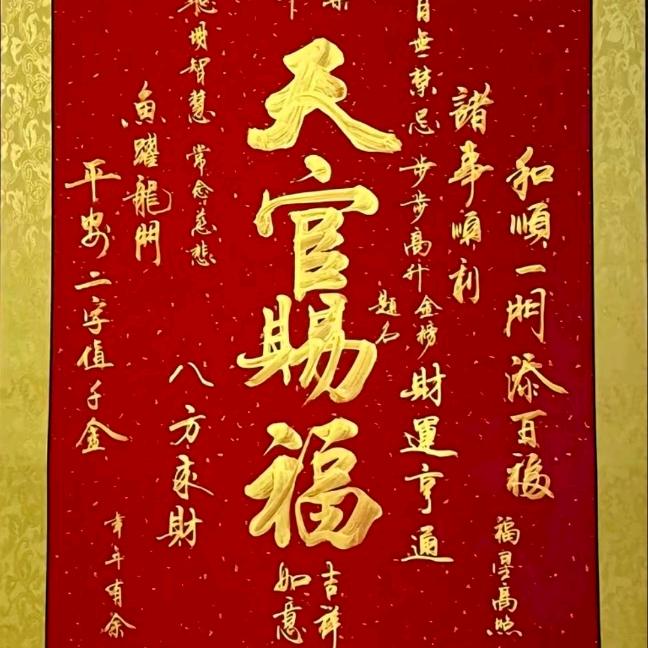 和順一門添百福
福星高照
諸事順利
百無禁忌
步步高升
金榜
題名
財運亨通
天官賜福
吉祥
如意
聰明智慧
常念慈悲
八方來財
魚躍龍門
平安二字值千金
年年有余